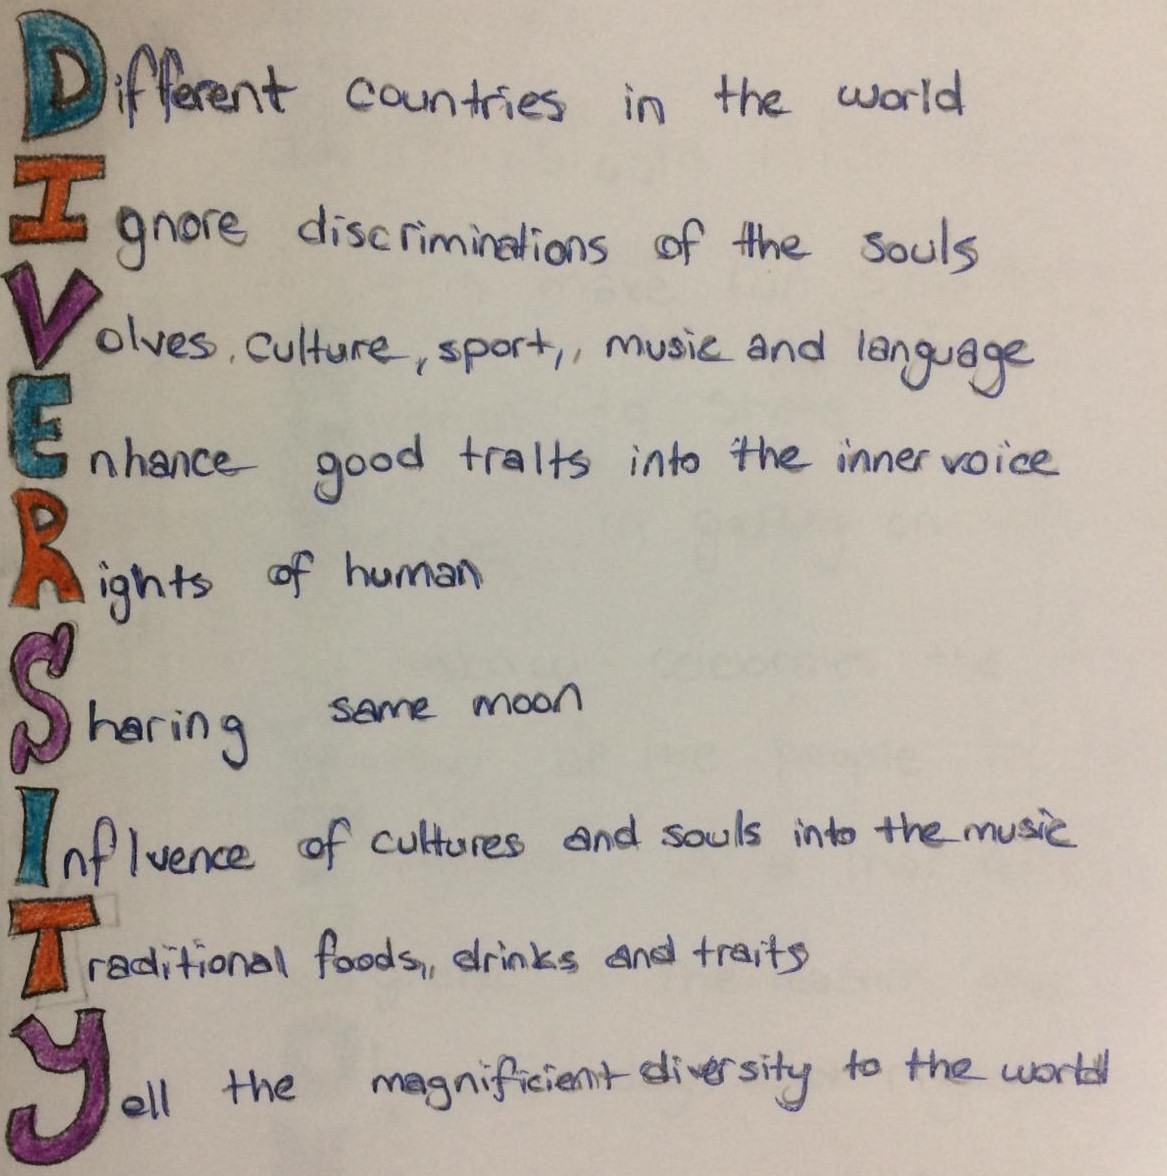 Different countries in the world
Ignore discriminations of the souls
Volves, culture, sport,, music and language
Enhance good traits into the inner voice
Rights of human
Sharing same moon
Influence of cultures and souls into the music
Traditional foods,, drinks and traits
Yell the magnificient diversity to the world